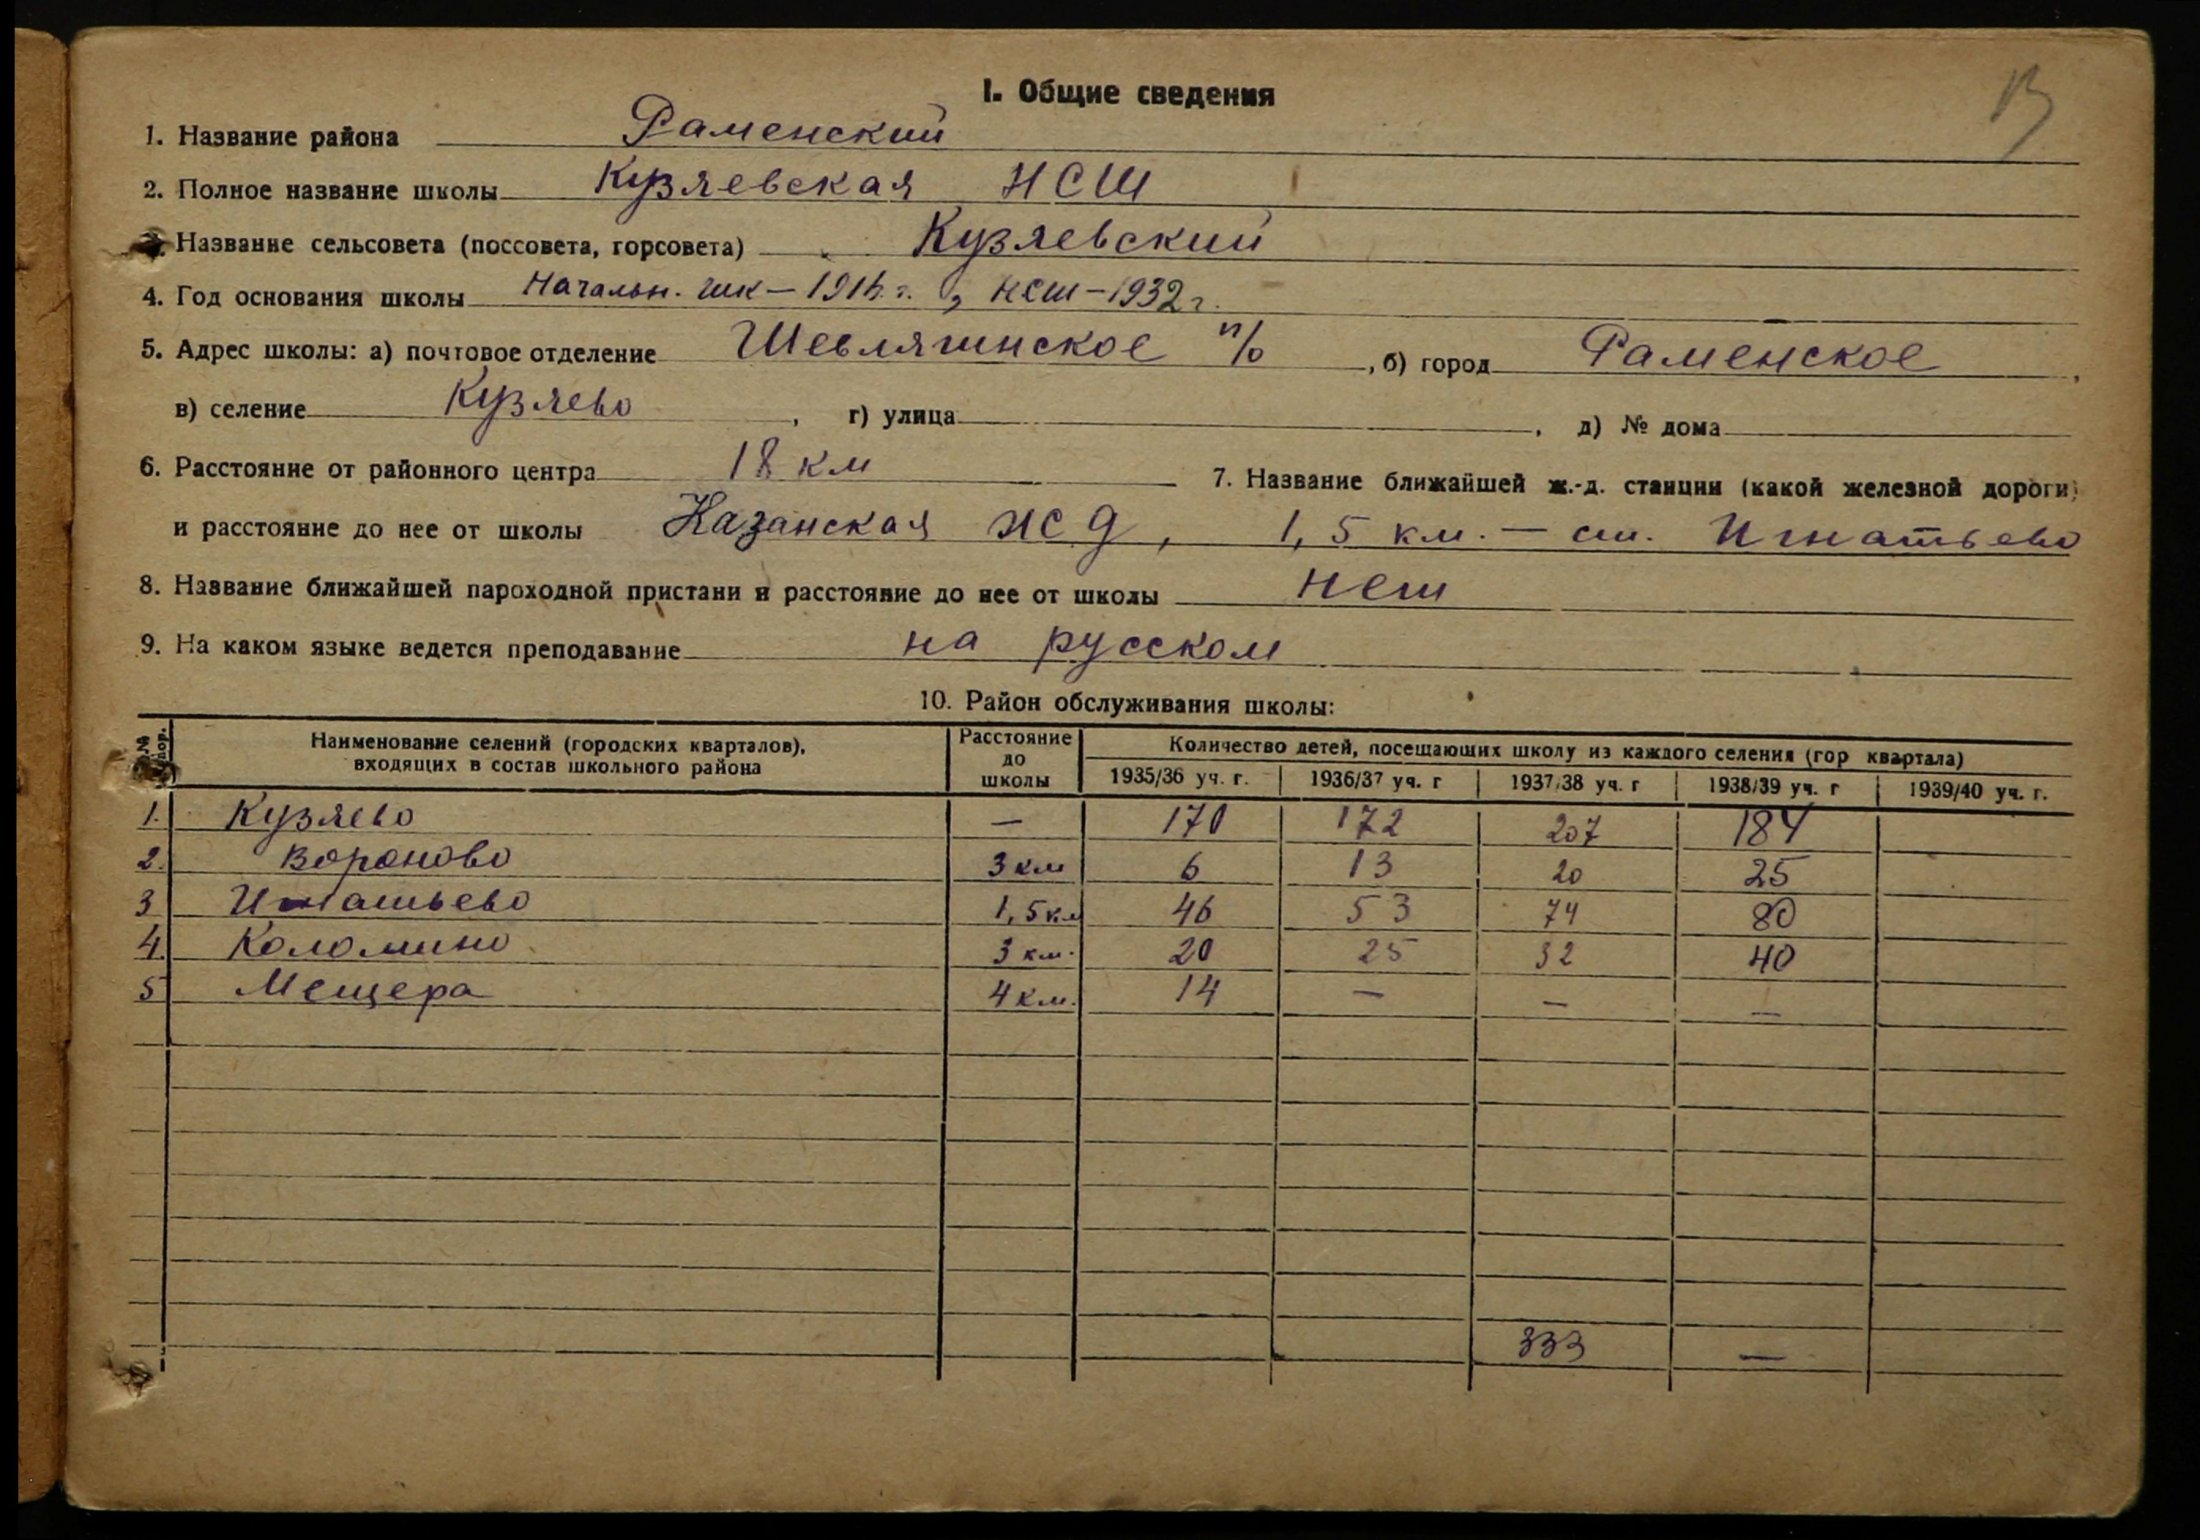 I. Общие сведения
1. Название района Раменский
2. Полное название школы Кузяевская НСШ
3. Название сельсовета (поссовета, горсовета) Кузяевский
4. Год основания школы Начальн. шк — 191 г. , НСШ — 1932 г.
5. Адрес школы: а) почтовое отделение Шевлягинское п/о , б) город Раменское ,
в) селение Кузяево , г) улица , д) № дома
6. Расстояние от районного центра 18 км 7. Название ближайшей ж.-д. станции (какой железной дороги)
и расстояние до нее от школы Казанская ж д , 1,5 км. — ст. Игнатьево
8. Название ближайшей пароходной пристани и расстояние до нее от школы нет
9. На каком языке ведется преподавание на русском
10. Район обслуживания школы:
№ пор. Наименование селений (городских кварталов), входящих в состав школьного района Расстояние до школы Количество детей, посещающих школу из каждого селения (гор квартала)
1935/36 уч. г. 1936/37 уч. г 1937/38 уч. г 1938/39 уч. г 1939/40 уч. г.
1. Кузяево — 170 172 207 184
2. Вороново 3 км 6 13 20 25
3 Игнатьево 1,5 км 46 53 74 80
4. Коломино 3 км. 20 25 32 40
5 Мещера 4 км. 14 — — —
333 —